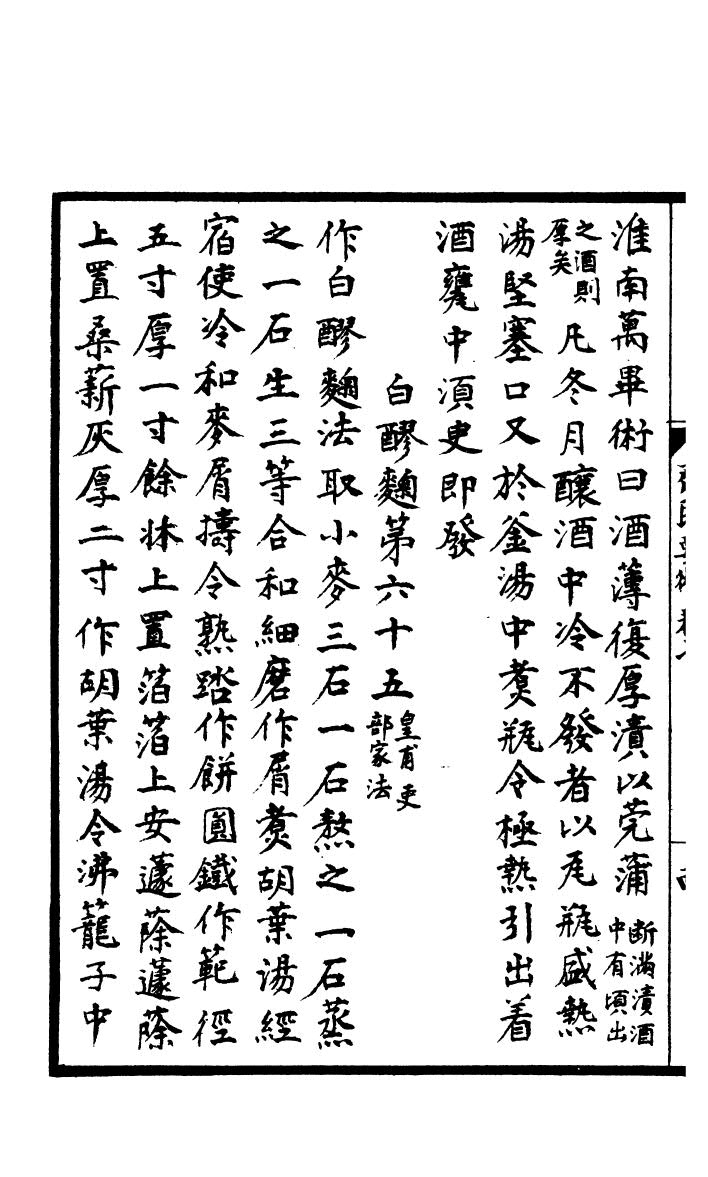 淮南萬畢術曰酒薄復厚漬以莞蒲斷滿漬酒中有頃出
之酒則厚矣凡冬月釀酒中冷不發者以瓦瓶盛熱
湯堅塞口又於釜湯中煑瓶令極熱引出着
酒甕中須臾即發
白醪麴第六十五皇甫吏部家法
作白醪麴法取小麥三石一石熬之一石蒸
之一石生三等合和細磨作屑煑胡葉湯經
宿使冷和麥屑擣令熟踏作餅圓鐵作範徑
五寸厚一寸餘牀上置箔箔上安蘧蒢蘧蒢
上置桑薪灰厚二寸作胡葉湯令沸籠子中